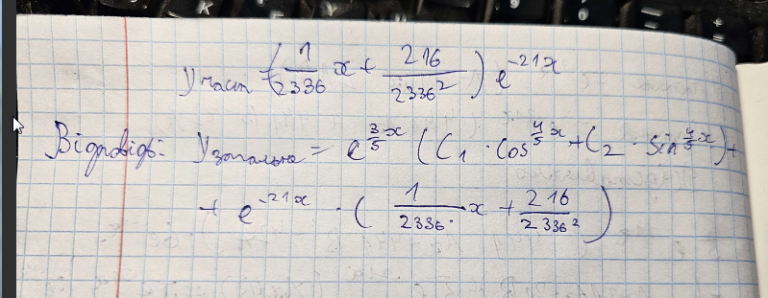 y част = (1/2336 x + 216/2336²) e^-21x
Відповідь: y загальне = e^3/5x (C₁ · cos 4/5x + C₂ · sin 4/5x) +
+ e^-21x · (1/2336 · x + 216/2336²)